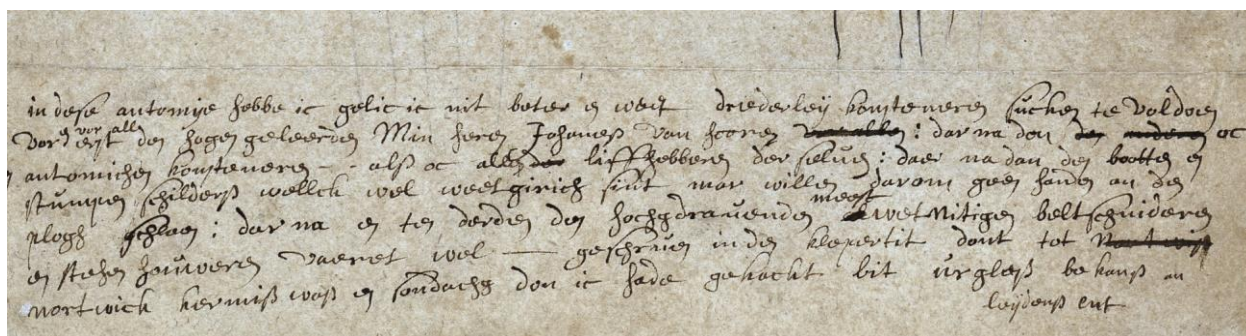 in dese automije hebbe ic gelic ic nit beter en weet driederleij konsteneren sucken te voldoen
vor en vor all erst den hogen geleerden Min heren Johanes van horen : dar na den oc
antomichen konsteneren - alss oc allen liffhebberen der selven : daer na dan den botten en
stumpen schilders wellck wel weetgirich sint mar willen darom geen handen an den
plogh schlaen : dar na en ten derden den hochgdravenden meest wetnitigen beltschnideren
en stehen houweren vaeret wel — geschriven in den klepertit dont tot
nortwick kermiss wass en sondachg don ic hade gehackt bit urgless be kanss an
leijdenss ent